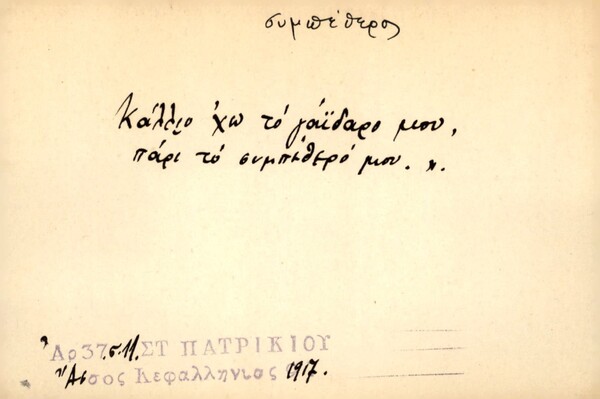 συμπέθερος
Κάλλιο ἔχω τό γάϊδαρο μου,
πάρι τό συμπέθερό μου. ».
Ἀρ37.σ.11. ΣΤ ΠΑΤΡΙΚΙΟΥ
Ἄσσος Κεφαλληνιας 1917.